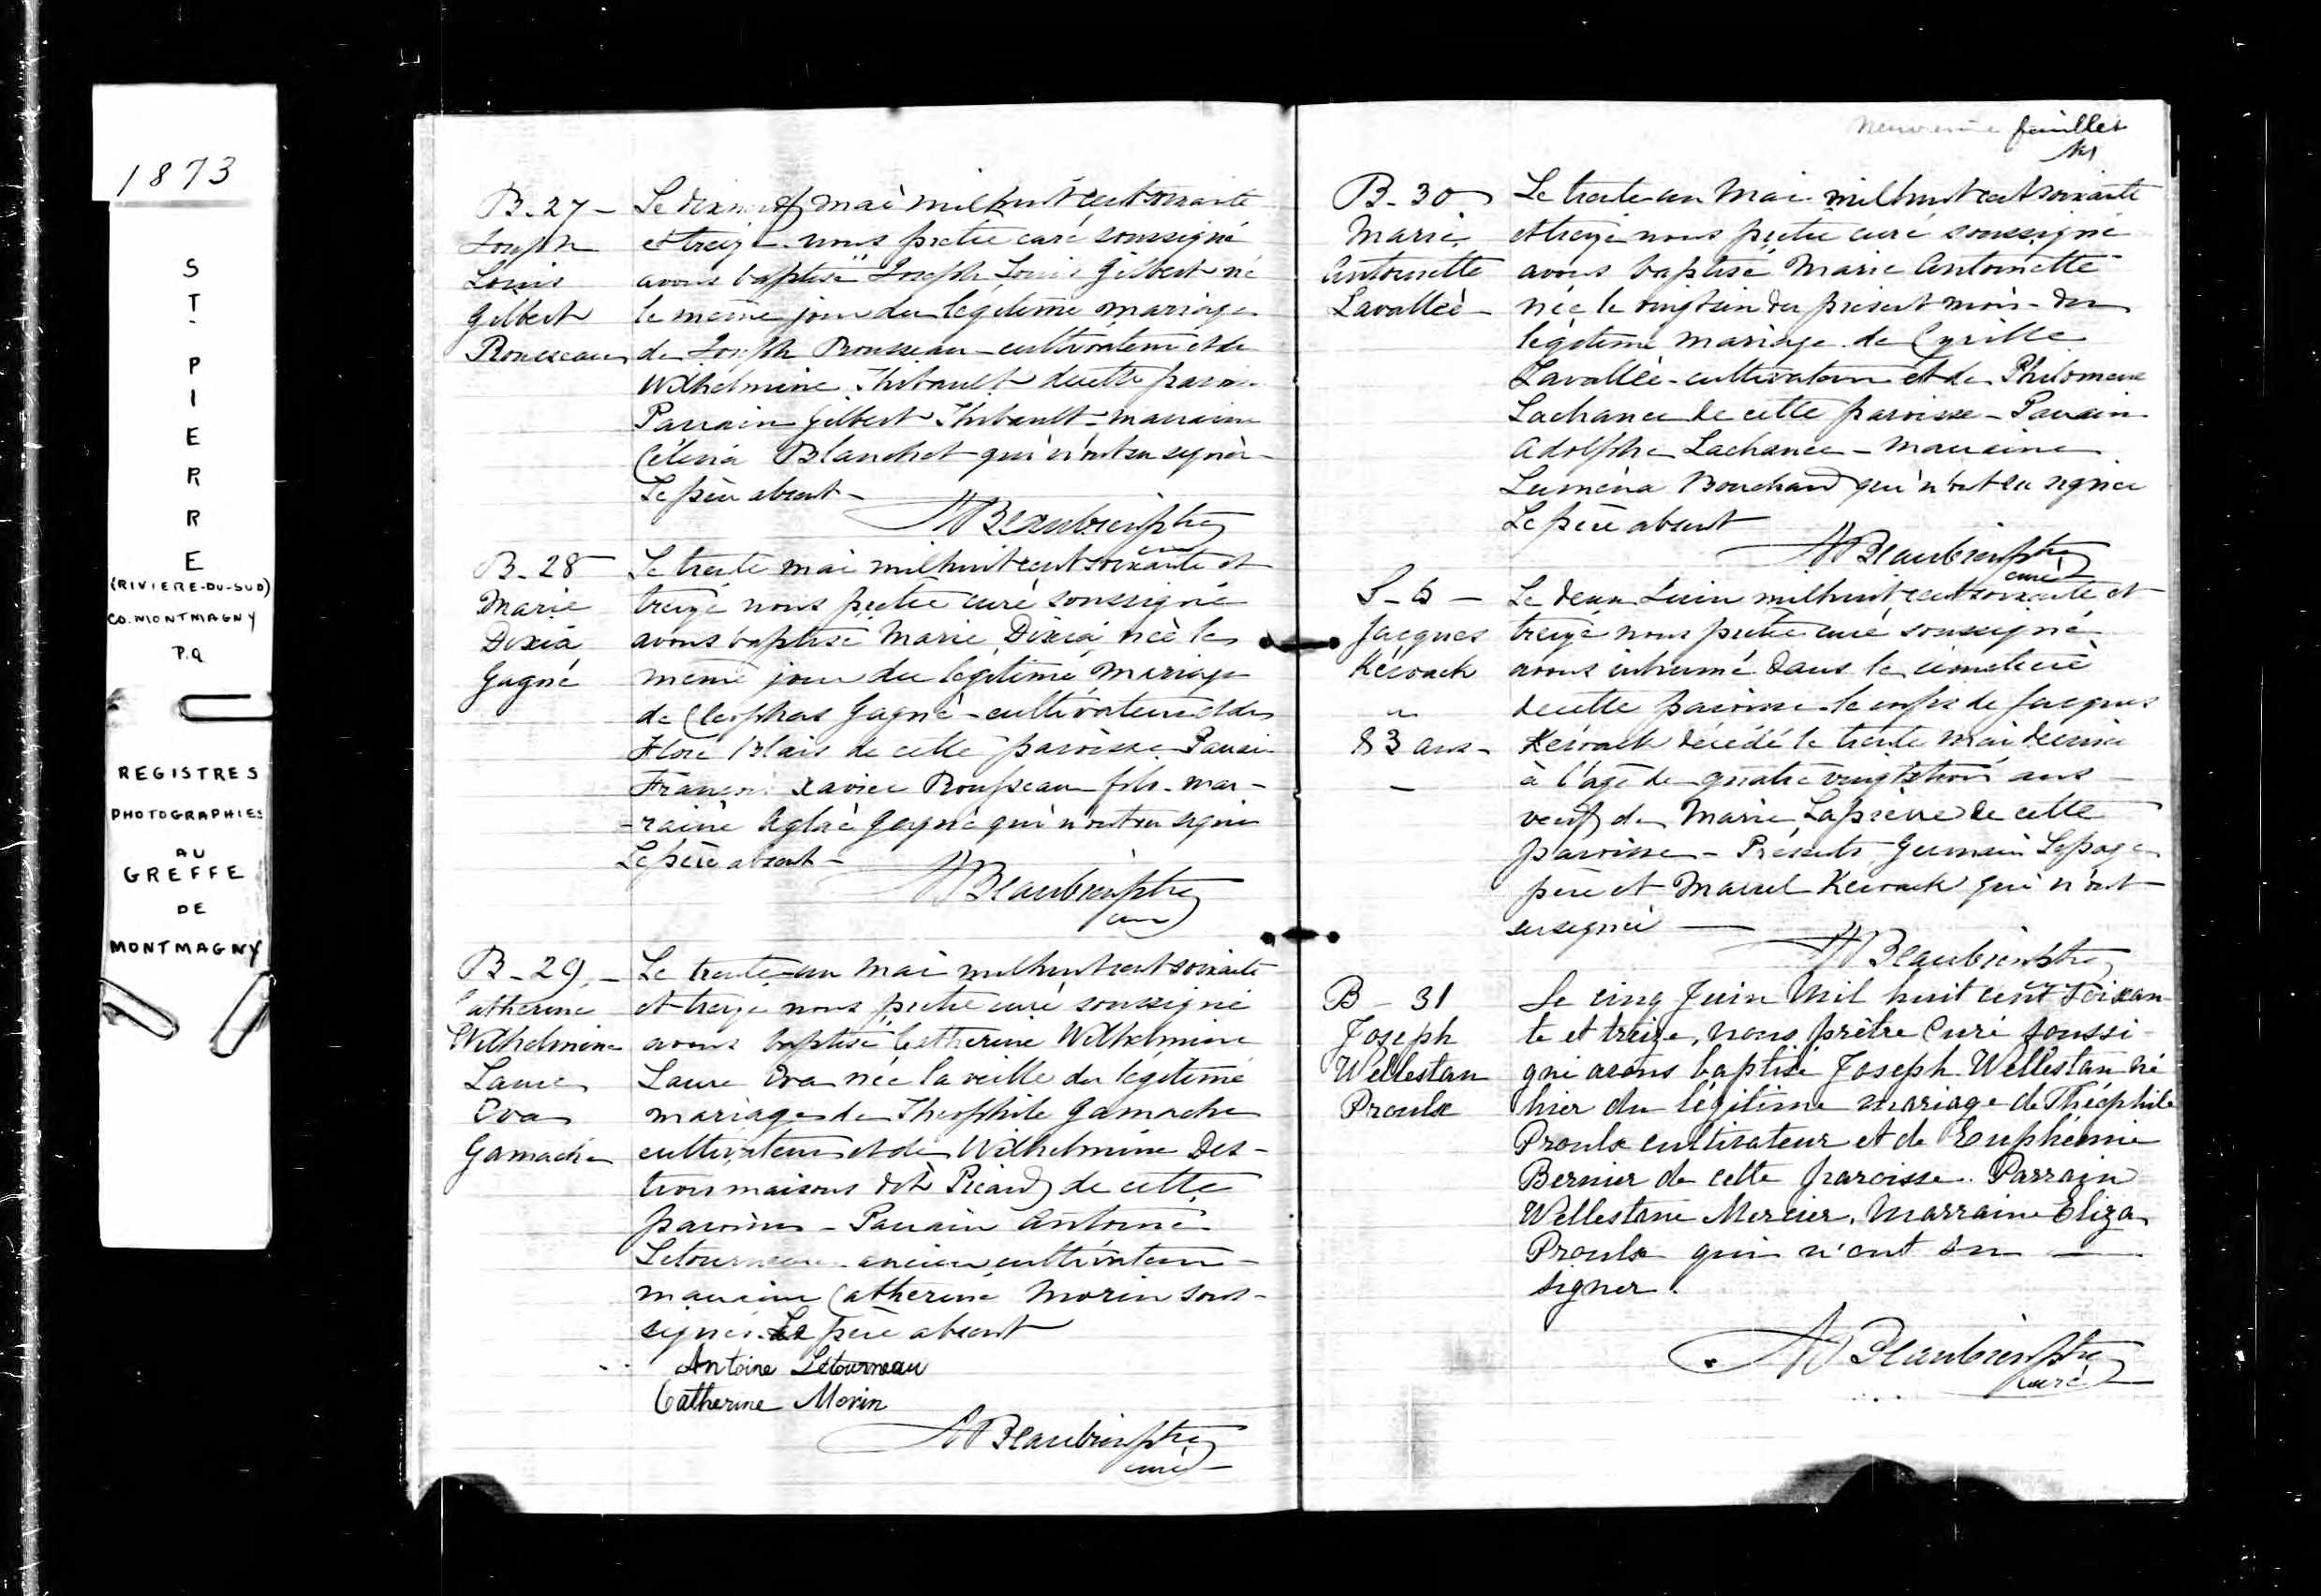 1873
ST. PIERRE
(RIVIERE-DU-SUD)
CO. MONTMAGNY
P.Q
REGISTRES
PHOTOGRAPHIES
AU
GREFFE
DE
MONTMAGNY
B-27-
Joseph
Louis
Gilbert
Rousseau
Le dixneuf mai mil huit cent soixante
et treize nous prêtre curé soussigné
avons baptisé Joseph Louis Gilbert né
le même jour du légitime mariage
de Joseph Rousseau - cultivateur et de
Wilhelmine Thibault de cette parois
Parrain Gilbert Thibault - marraine
Célina Blanchet qui n'ont su signer -
Le père absent -
NBeaubien ptre
curé
B-28
Marie
Dixia
Gagné
Le trente mai mil huit cent soixante et
treize nous prêtre curé soussigné
avons baptisé Marie Dixia née le
même jour du légitime mariage
de Cléophas Gagné - cultivateur et de
Flore Blais de cette paroisse Parrain
François Xavier Rousseau fils - mar-
-raine Aglaé Gagné qui n'ont su signer
Le père absent -
NBeaubien ptre
curé
B-29.-
Catherine
Wilhelmine
Laure
Eva
Gamache
Le trente-un mai mil huit cent soixante
et treize nous prêtre curé soussigné
avons baptisé Catherine Wilhelmine
Laure Eva née la veille du légitime
mariage de Théophile Gamache
cultivateur et de Wilhelmine Des-
trois maisons dit Picard de cette
paroisse - Parrain Antoine
Letourneau ancien cultivateur -
marraine Catherine Morin sous-
signés. Le père absent
Antoine Létourneau
Catherine Morin
NBeaubien ptre
curé
Neuvième feuillet
B-30
Marie
Antoinette
Lavallée -
Le trente un Mai mil huit cent soixante
et treize nous prêtre curé soussigné
avons baptisé Marie Antoinette
née le vingt un du présent mois - du
légitime mariage de Cyrille
Lavallée - cultivateur et de Philomène
Lachance de cette paroisse - Parrain
Adolphe Lachance - marraine
Luména Bouchard qui n'ont su signer
Le père absent
NBeaubien ptre
curé
S-6 -
Jacques
Kérouack
83 ans -
Le deux Juin mil huit cent soixante et
treize nous prêtre curé soussigné
avons inhumé dans le cimetière
de cette paroisse le corps de Jacques
Kérouack décédé le trente mai dernier
à l'age de quatre vingt trois ans -
veuf de Marie Lapierre de cette
paroisse - Présents Germain Lepage
père et Marcel Kérouack qui n'ont
su signer -
NBeaubien ptre
B - 31
Joseph
Wellestan
Proulx
Le cinq Juin Mil huit cent soixan-
te et treize, nous prêtre Curé soussi-
gné avons baptisé Joseph Wellestan né
hier du légitime mariage de Théophile
Proulx cultivateur et de Euphémie
Bernier de cette paroisse. Parrain
Wellestane Mercier, Marraine Eliza
Proulx qui n'ont su -
signer.
NBeaubien ptre
curé